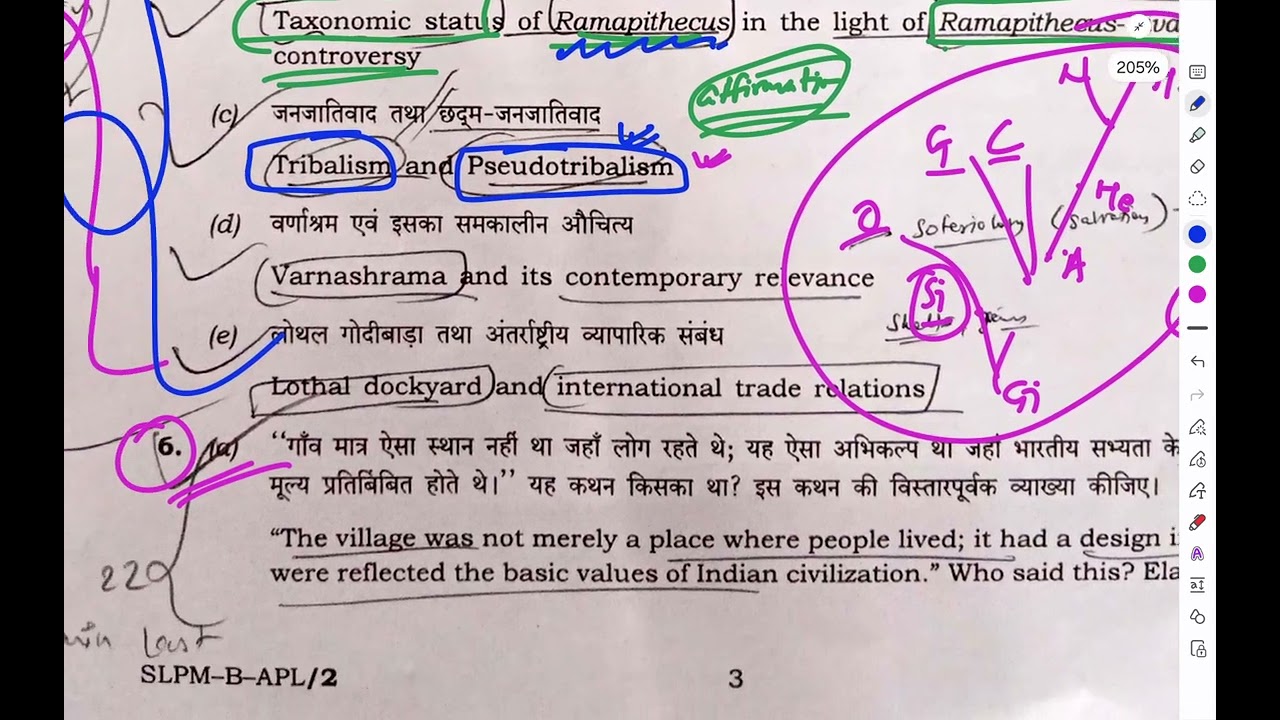 Taxonomic status of Ramapithecus in the light of Ramapithecus-
controversy
205%
affirmation
(c) जनजातिवाद तथा छद्म-जनजातिवाद
Tribalism and Pseudotribalism
G C
(d) वर्णाश्रम एवं इसका समकालीन औचित्य
O
He
A
Varnashrama and its contemporary relevance
Si
(e) लोथल गोदीबाड़ा तथा अंतर्राष्ट्रीय व्यापारिक संबंध
Lothal dockyard and international trade relations
Gi
6. (a) “गाँव मात्र ऐसा स्थान नहीं था जहाँ लोग रहते थे; यह ऐसा अभिकल्प था जहाँ भारतीय सभ्यता के
मूल्य प्रतिबिंबित होते थे।” यह कथन किसका था? इस कथन की विस्तारपूर्वक व्याख्या कीजिए।
“The village was not merely a place where people lived; it had a design
were reflected the basic values of Indian civilization.” Who said this?
220
last
SLPM-B-APL/2
3